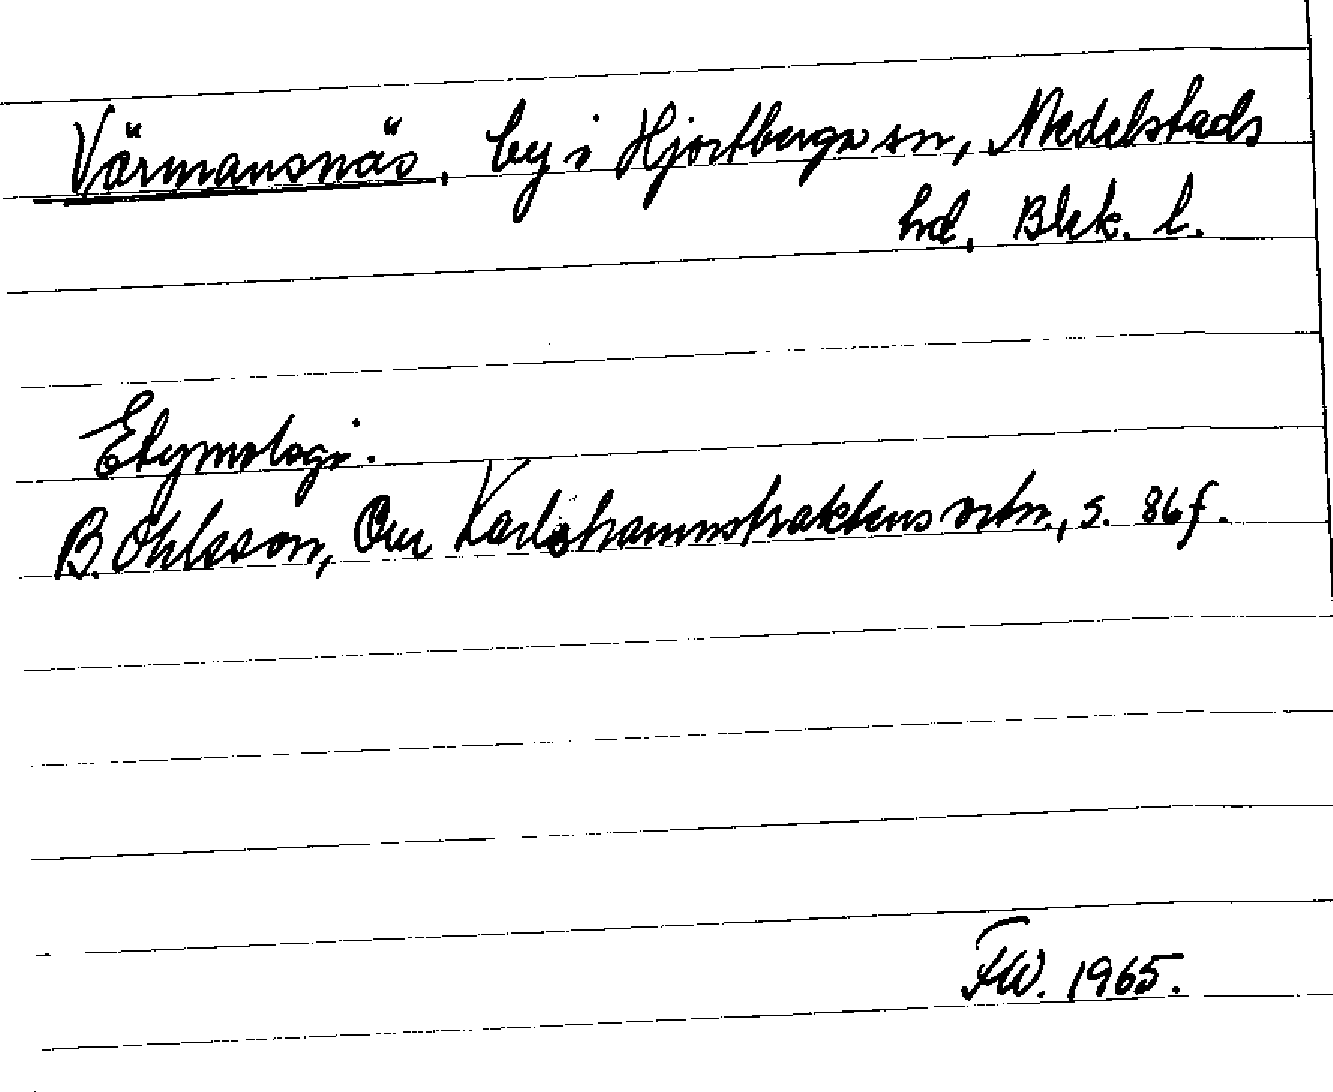 Värmansnäs, by i Hjortsberga sn, Medelstads
hd, Blek. l.
Etymologi.
B. Ohlsson, Om Karlshamnstraktens ortn., s. 86 f.
FW. 1965.